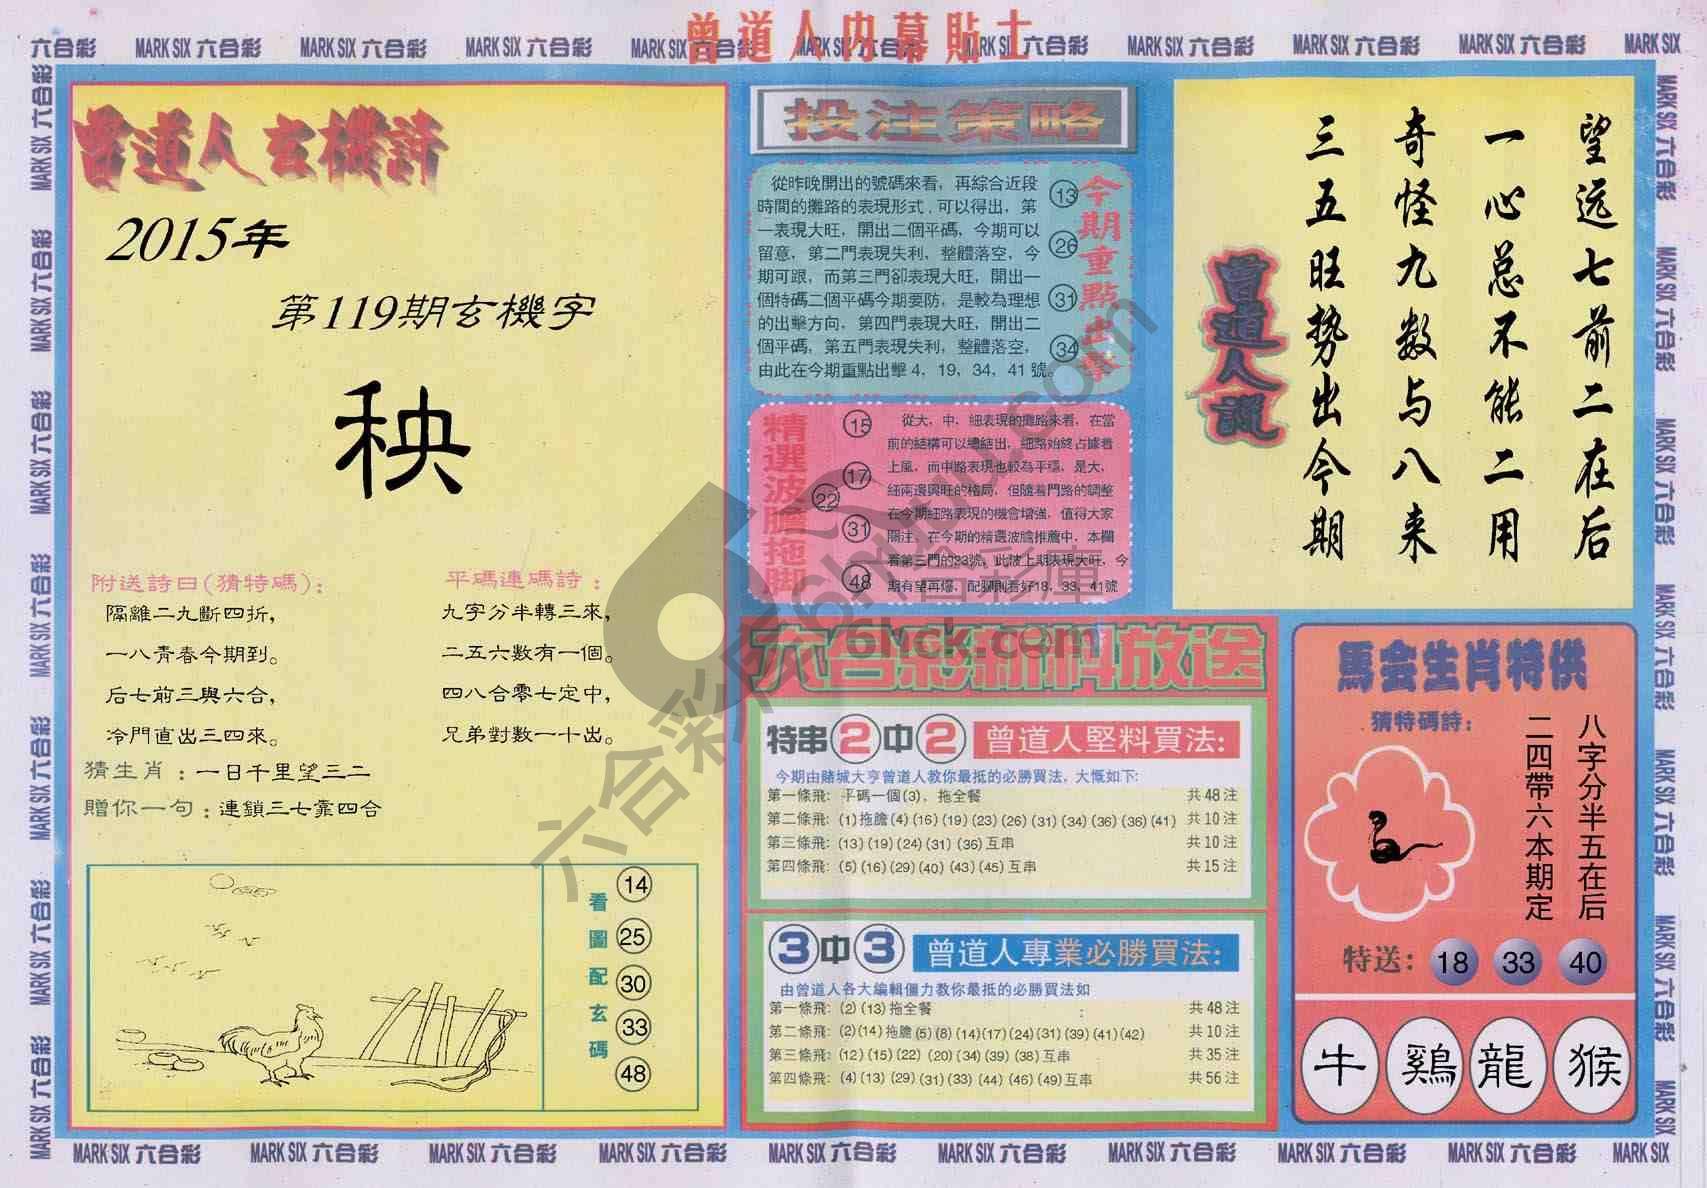 曾道人内幕貼士
六合彩 MARK SIX 六合彩 MARK SIX 六合彩 MARK SIX 六合彩 MARK SIX 六合彩 MARK SIX 六合彩 MARK SIX 六合彩 MARK SIX 六合彩 MARK SIX 六合彩 MARK SIX 六合彩 MARK SIX
曾道人玄機詩
2015年
第119期玄機字
秧
附送詩曰(猜特碼):
隔離二九斷四折,
一八青春今期到。
后七前三與六合,
冷門直出三四來。
平碼連碼詩:
九字分半轉三來,
二五六數有一個。
四八合零七定中,
兄弟對數一十出。
猜生肖:一日千里望三二
贈你一句:連鎖三七靠四合
看圖配玄碼
14
25
30
33
48
投注策略
從昨晚開出的號碼來看，再綜合近段
時間的攤路的表現形式，可以得出，第
一表現大旺，開出二個平碼，今期可以
留意，第二門表現失利，整體落空，今
期可跟，而第三門卻表現大旺，開出一
個特碼二個平碼今期要防，是較為理想
的出擊方向，第四門表現大旺，開出二
個平碼，第五門表現失利，整體落空，
由此在今期重點出擊 4，19，34，41 號。
13
26
31
34
今期重點出擊
精選波膽拖脚
15
17
22
31
48
從大，中，細表現的攤路來看，在當
前的結構可以總結出，細路始終占據着
上風，而中路表現也較為平穩，是大，
細兩邊興旺的格局，但隨着門路的調整
在今期細路表現的機會增強，值得大家
關注，在今期的精選波膽推薦中，本欄
看第三門的23號，此波上期表現大旺，今
期有望再爆，配腳則看好18，33，41號
六合彩新料放送
特串2中2 曾道人堅料買法:
今期由賭城大亨曾道人教你最抵的必勝買法，大慨如下:
第一條飛: 平碼一個(3)，拖全餐 共48注
第二條飛: (1)拖膽(4)(16)(19)(23)(26)(31)(34)(36)(36)(41) 共10注
第三條飛: (13)(19)(24)(31)(36)互串 共10注
第四條飛: (5)(16)(29)(40)(43)(45)互串 共15注
3中3 曾道人專業必勝買法:
由曾道人各大編輯僵力教你最抵的必勝買法如
第一條飛: (2)(13)拖全餐 共48注
第二條飛: (2)(14)拖膽(5)(8)(14)(17)(24)(31)(39)(41)(42) 共10注
第三條飛: (12)(15)(22)(20)(34)(39)(38)互串 共35注
第四條飛: (4)(13)(29)(31)(33)(44)(46)(49)互串 共56注
望远七前二在后
一心总不能二用
奇怪九数与八来
三五旺势出今期
曾道人説
馬会生肖特供
猜特碼詩:
八字分半五在后
二四帶六本期定
特送: 18 33 40
牛 鷄 龍 猴
6hck.com
MARK SIX 六合彩 MARK SIX 六合彩 MARK SIX 六合彩 MARK SIX 六合彩 MARK SIX 六合彩 MARK SIX 六合彩 MARK SIX 六合彩 MARK SIX 六合彩 MARK SIX 六合彩 MARK SIX